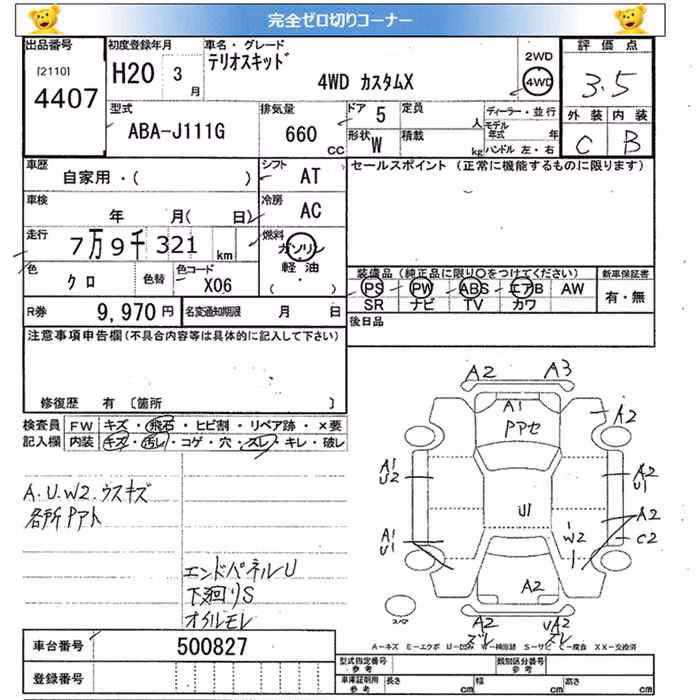 完全ゼロ切りコーナー
出品番号
[2110]
4407
初度登録年月
H20 3 月
車名・グレード
テリオスキッド
4WD カスタムX
2WD
4WD
評価点
3.5
外装 内装
C B
型式
ABA-J111G
排気量
660 CC
ドア 5
形状 W
定員 人
積載 kg
ディーラー・並行
モデル年式 年
ハンドル 左・右
車歴
自家用・( )
シフト
AT
セールスポイント (正常に機能するものに限ります)
車検
年 月( 日)
冷房
AC
走行
7万9千321 km
燃料
ガソリン
軽油
( ・ )
色
クロ
色替
色コード
X06
装備品(純正品に限り〇をつけてください)
PS PW ABS エアB AW
SR ナビ TV カワ
新車保証書
有・無
R券 9,970円
名変通知期限 月 日
後日品
注意事項申告欄(不具合内容等は具体的に記入して下さい)
修復歴 有 〔箇所 〕
検査員 FW キズ・飛石・ヒビ割・リペア跡・×要
記入欄 内装 キズ・汚レ・コゲ・穴・スレ・キレ・破レ
A.U.W2.ウスキズ
各所Pアト
エンドパネルU
下廻りS
オイルモレ
A2 A3
A1
Pアセ
A2
A1
U2
A2
U1
U1
A2
A1
U1
W2
C2
A2
スペア
A2
ズレ
UA2
ズレ
A=キズ E=エクボ U=凹み W=補修跡 S=サビ C=腐食 XX=交換済
車台番号 500827
登録番号
型式指定番号
参考
類別区分番号
参考
車庫証明用
参考
長さ cm 幅 cm 高さ cm